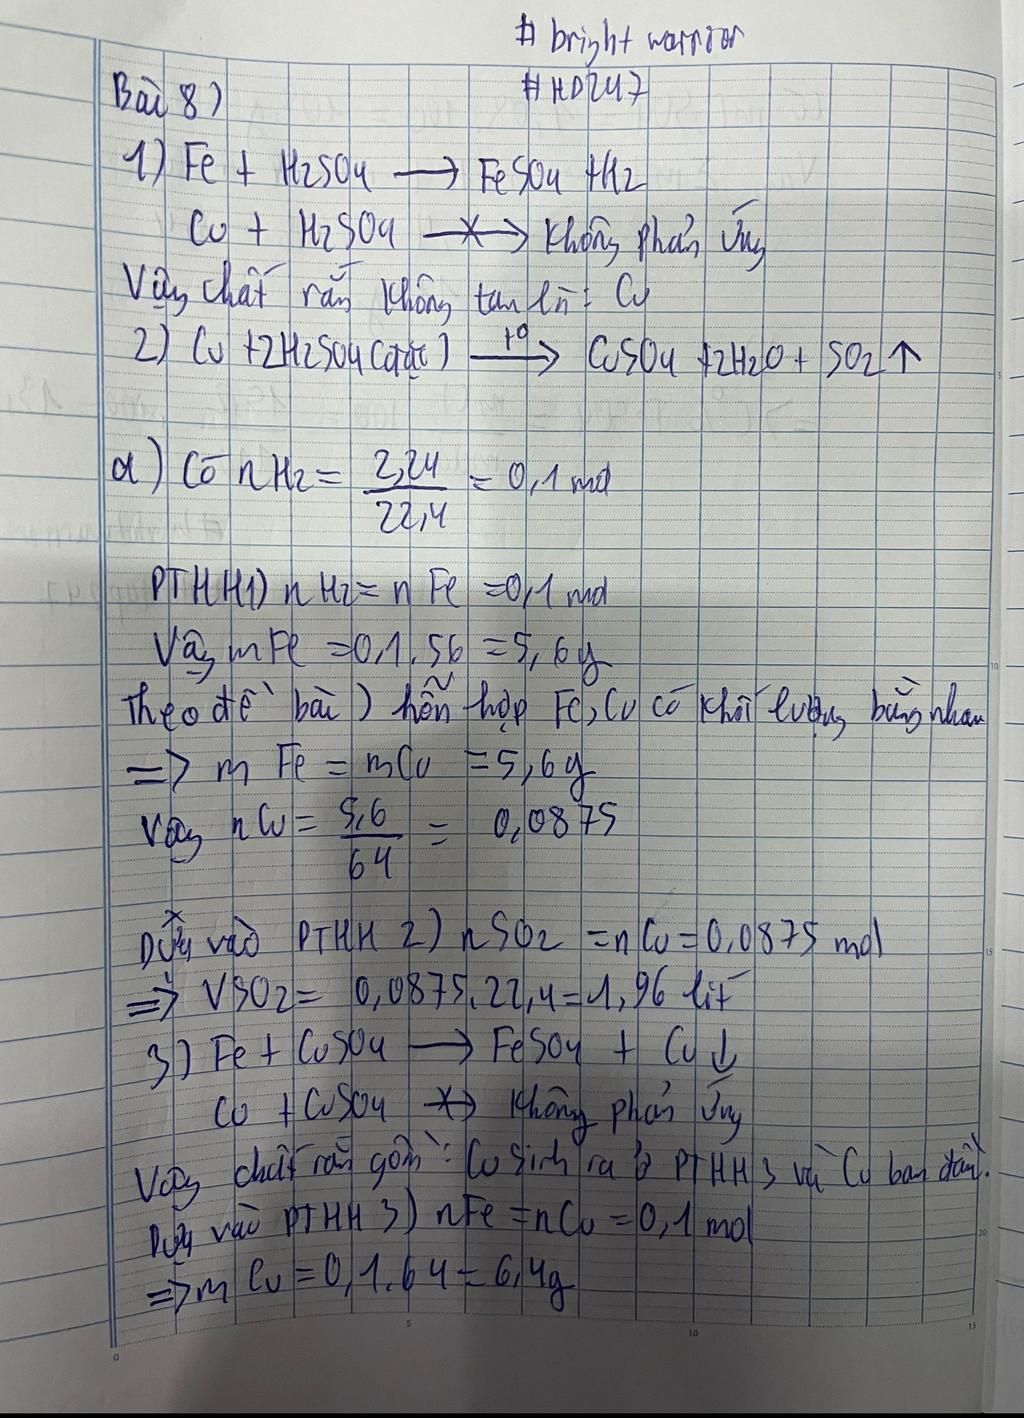 # bright warrior
# HD247
Bài 8)
1) Fe + H2SO4 → FeSO4 + H2
Cu + H2SO4 —x→ không phản ứng
Vậy chất rắn không tan là: Cu
2) Cu + 2H2SO4(đặc) —t°→ CuSO4 + 2H2O + SO2 ↑
a) Có nH2 = 2,24 / 22,4 = 0,1 mol
PTHH1) nH2 = nFe = 0,1 mol
Vậy mFe = 0,1.56 = 5,6g
Theo đề bài) hỗn hợp Fe, Cu có khối lượng bằng nhau
=> mFe = mCu = 5,6g
Vậy nCu = 5,6 / 64 = 0,0875
Dựa vào PTHH 2) nSO2 = nCu = 0,0875 mol
=> VSO2 = 0,0875.22,4 = 1,96 lít
3) Fe + CuSO4 → FeSO4 + Cu ↓
Cu + CuSO4 —x→ không phản ứng
Vậy chất rắn gồm: Cu sinh ra ở PTHH 3 và Cu ban đầu.
Dựa vào PTHH 3) nFe = nCu = 0,1 mol
=> mCu = 0,1.64 = 6,4g
0 5 10 15
5
10
15
20